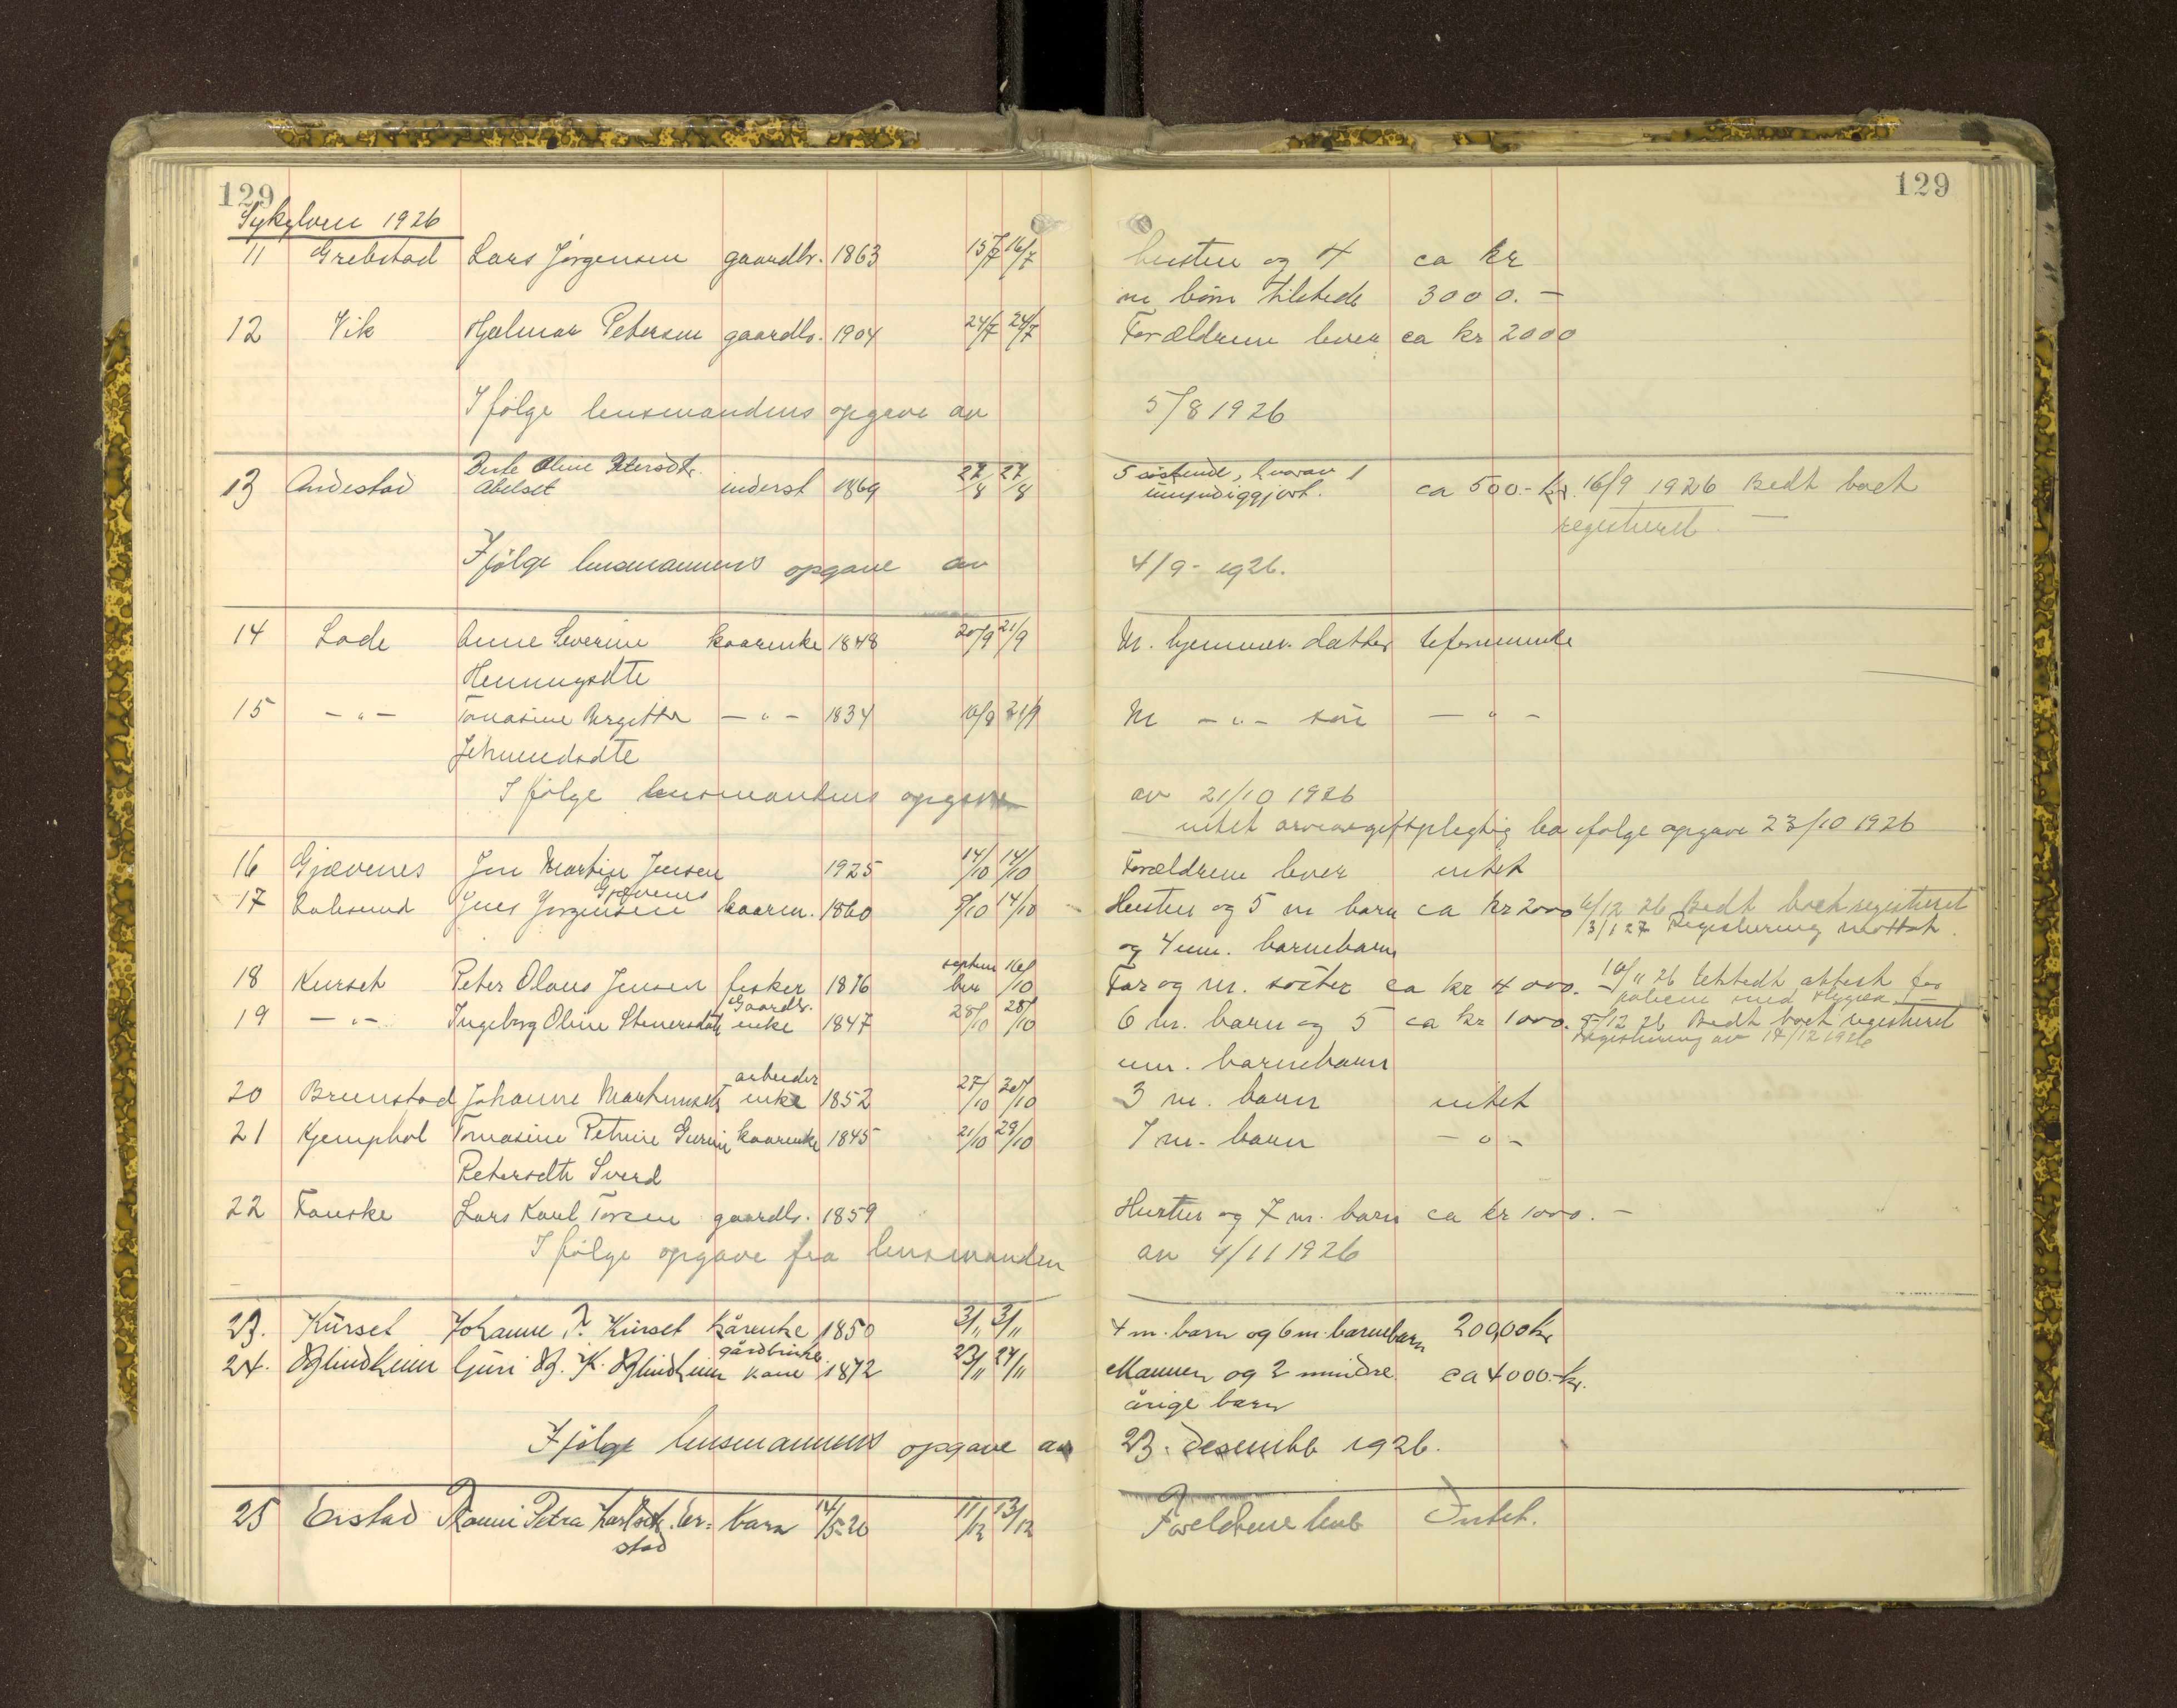 129
129
Sykylven 1926
11 Grebstad Lars Jørgensen gaardbr. 1863 15/7 16/7 hustru og 4 ca kr
m børn tilstede 3000.-
12 Vik Hjalmar Petersen gaardbr. 1904 24/7 24/7 Forældrene lever ca kr 2000
Ifølge lensmandens opgave av 5/8 1926
Berte Oline Petersdtr. 5 søskende, hvorav 1
13 Andestad Abelset inderst 1869 27/8 27/8 umyndiggjort. ca 500.- kr. 16/9 1926 Bedt boet
registreret. -
Ifølge lensmannens opgave av 4/9 - 1926.
14 Lade Anne Severine kaarenke 1848 20/9 21/9 M. hjemmev. datter Uformuende
Henningsdtr
15 - " - Tomasine Bergitte - " - 1834 16/8 21/9 M - " - søn - " -
I følge lensmandens opgave av 21/10 1926
intet arveavgiftspligtig bo ifølge opgave 23/10 1926
16 Gjævenes Jon Martin Jensen 1925 14/10 14/10 Forældrene lever intet
Gjævenes
17 Jens Jørgensen kaarm. 1860 9/10 14/10 Hustru og 5 m barn ca kr 2000 6/12 26 Bedt boet registreret
og 4 um. barnebarn 3/1 27 Registrering mottat.
septem 16/
18 Kurset Peter Olaus Jensen fisker 1876 ber /10 Far og m. søster ca kr 4000.- 10/11 26 Utstedt attest for
Gaardbr.
19 - " - Ingeborg Oline Steinersdatter enke 1847 28/10 28/10 6 m. barn og 5 ca kr 1000. 8/12 26 Bedt boet registreret
um. barnebarn Registrering av 17/12 1926
arbeider
20 Brunstad Johanne enke 1852 27/10 20/10 3 m. barn intet
21 Kjemphol Tomasine Petrine Gurine kaarenke 1845 21/10 29/10 7 m. barn - " -
Petersdtr Sverd
22 Fauske Lars Karl gaardbr. 1859 Hustru og 7 m. barn ca kr 1000.-
I følge opgave fra lensmanden av 4/11 1926
23. Kurset Johanne P. Kurset kårenke 1850 3/11 3/11 4 m. barn og 6 m. barnebarn 200,00 kr
gårdbruker
24. Blindheim Guri B. K. Blindheim kone 1872 23/11 24/11 Mannen og 2 mindre ca 4000.- kr.
årige barn
Ifølge lensmannens opgave av 23. desember 1926.
25 Erstad Ranni Petra Karlsdtr. Er= barn 14/5-20 11/12 13/12 Foreldrene lever Intet.
stad